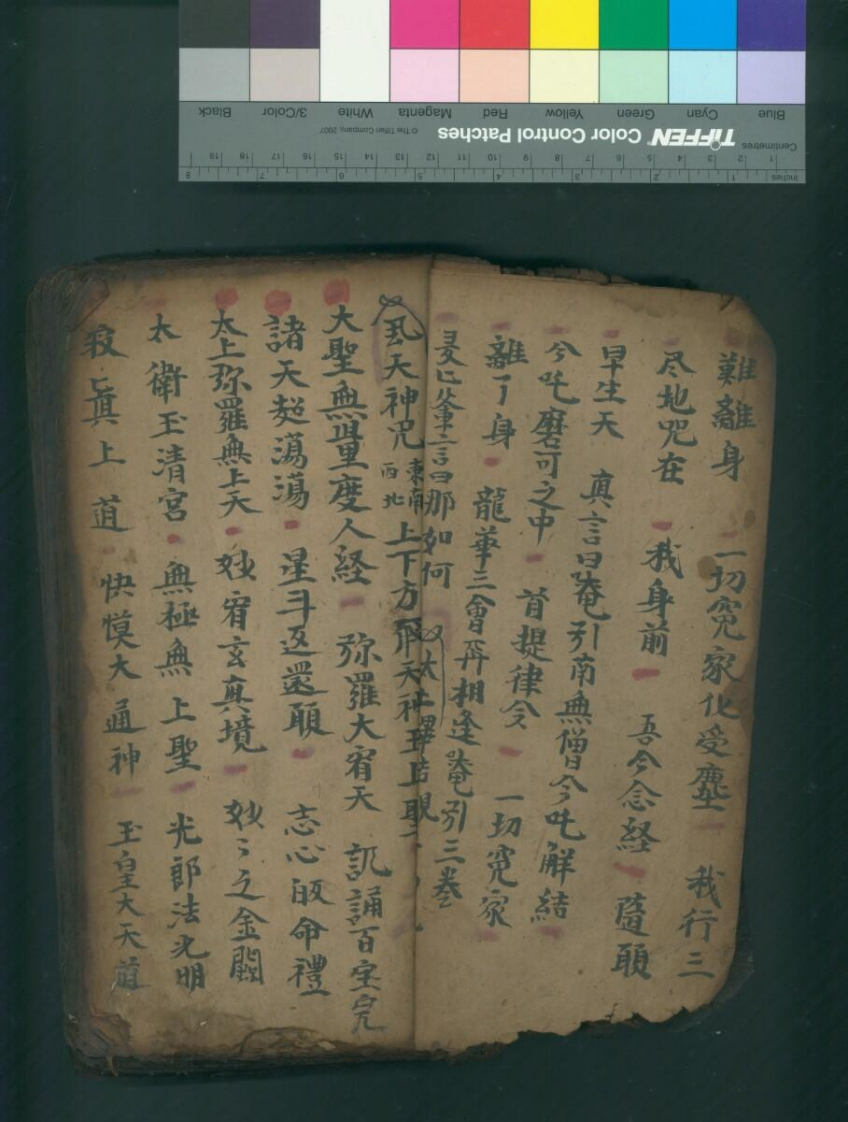 難離身 一切冤家化受塵 我行三
尽地咒在 我身前 吾今念経 隨願
早生天 真言曰唵引南無僧今吒解結
今吒磨可之中 首提律令
離了身 龍華三會再相逢 唵引三卷 一切冤家
真言曰那如何
天神咒 東南西北 上下方
大聖無量度人経 弥羅大宥天 訊誦百宝
諸天超蕩蕩 星斗返還願 志心皈命禮
太上弥羅無上天 妙宥玄真境 妙〻之金闕
太衛玉清宮 無極無上聖 光郎法光明
寂〻真上道 恍慔大通神 玉皇大天道
Blue Cyan Green Yellow Red Magenta White 3/Color Black
TIFFEN Color Control Patches © The Tiffen Company, 2007
Centimetres 1 2 3 4 5 6 7 8 9 10 11 12 13 14 15 16 17 18 19
Inches 1 2 3 4 5 6 7 8